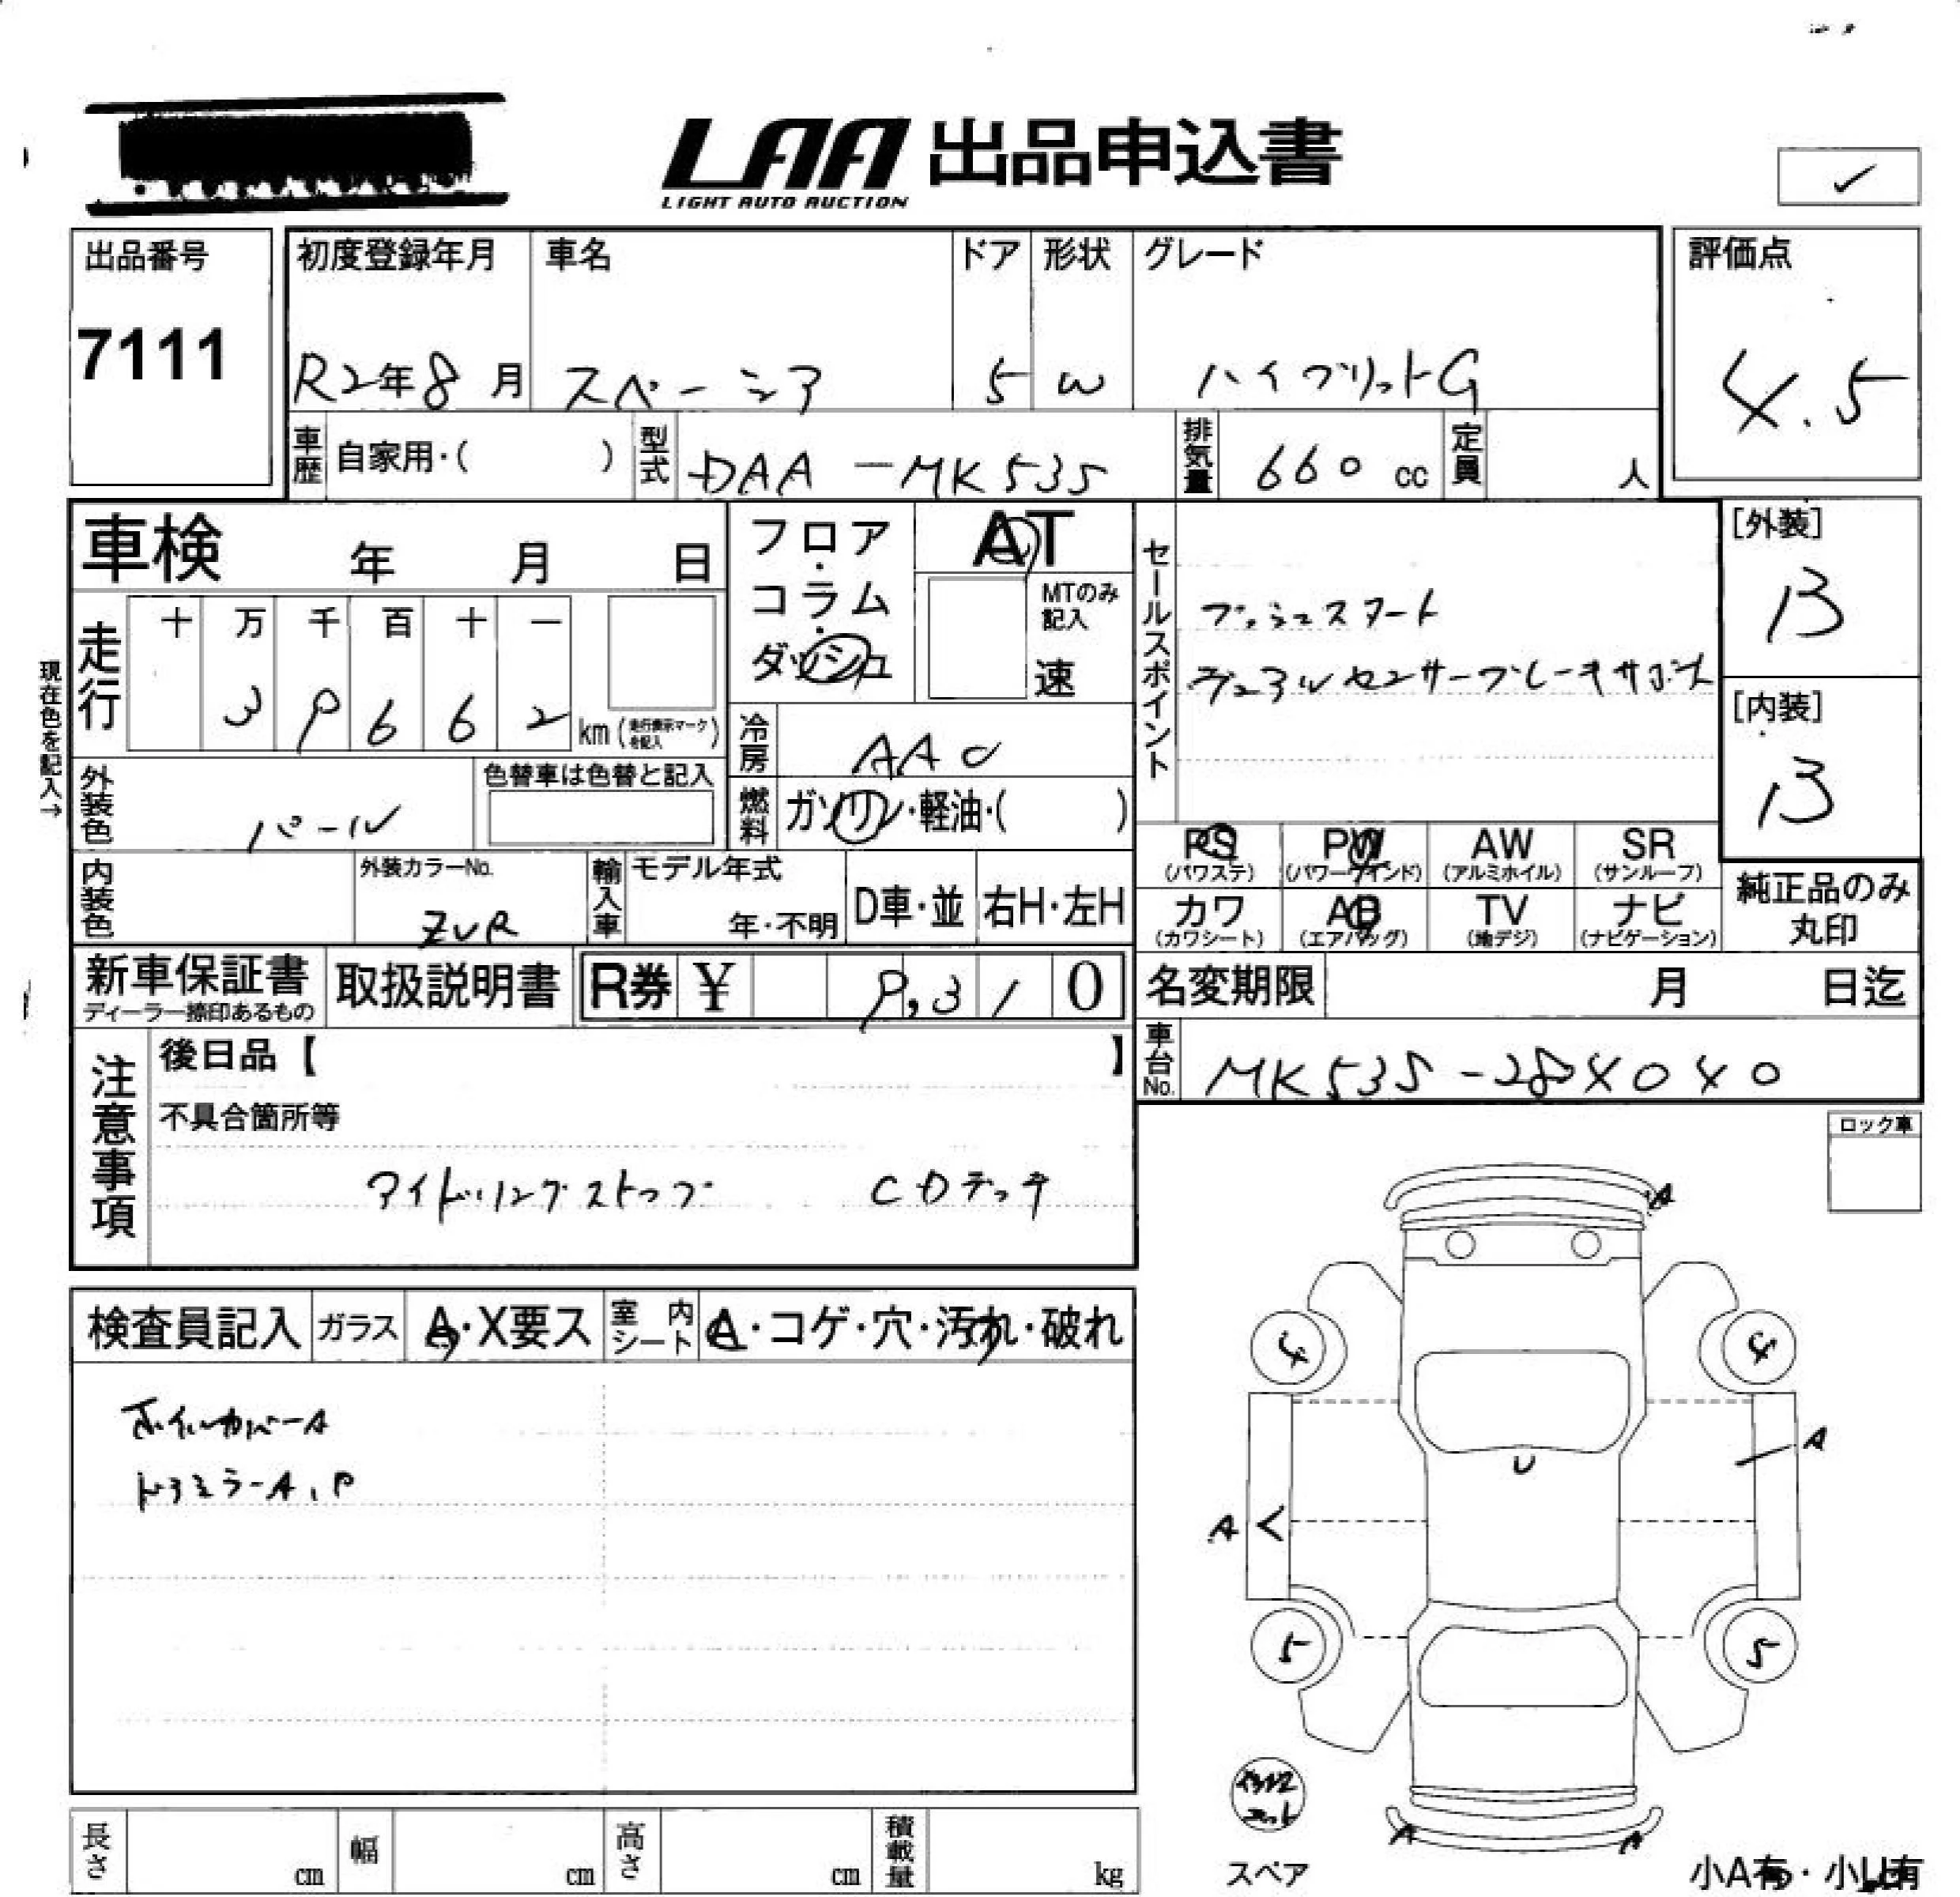 LAA 出品申込書
LIGHT AUTO AUCTION
✓
出品番号
7111
初度登録年月 車名 ドア 形状 グレード
R2年8月 スペーシア 5 W ハイブリットG
評価点
4.5
車歴 自家用・( ) 型式 DAA-MK53S 排気量 660cc 定員 人
車検 年 月 日
フロア・コラム・ダッシュ
AT
MTのみ記入
速
セールスポイント
プッシュスタート
デュアルセンサーブレーキサポート
[外装]
B
[内装]
B
現在色を記入→
走行 十 万 千 百 十 一
3 9 6 6 2 km(走行表示マークを記入)
冷房 AAC
外装色 パール
色替車は色替と記入
燃料 ガソリン・軽油・( )
PS PW AW SR
(パワステ) (パワーウインド) (アルミホイル) (サンルーフ)
カワ AB TV ナビ
(カワシート) (エアバッグ) (地デジ) (ナビゲーション)
純正品のみ
丸印
内装色 外装カラーNo. ZVR
輸入車 モデル年式
年・不明 D車・並 右H・左H
新車保証書
ディーラー捺印あるもの
取扱説明書
R券 ¥ 9,310
名変期限 月 日迄
車台No. MK53S-284040
注意事項
後日品【 】
不具合箇所等
アイドリングストップ CDデッキ
ロック車
検査員記入 ガラス A・X要ス 室内シート A・コゲ・穴・汚れ・破れ
ホイルカバーA
ドアミラーA、P
A
4 4
U
A
A
5 5
A A
スペア
長さ cm 幅 cm 高さ cm 積載量 kg
小A有・小U有